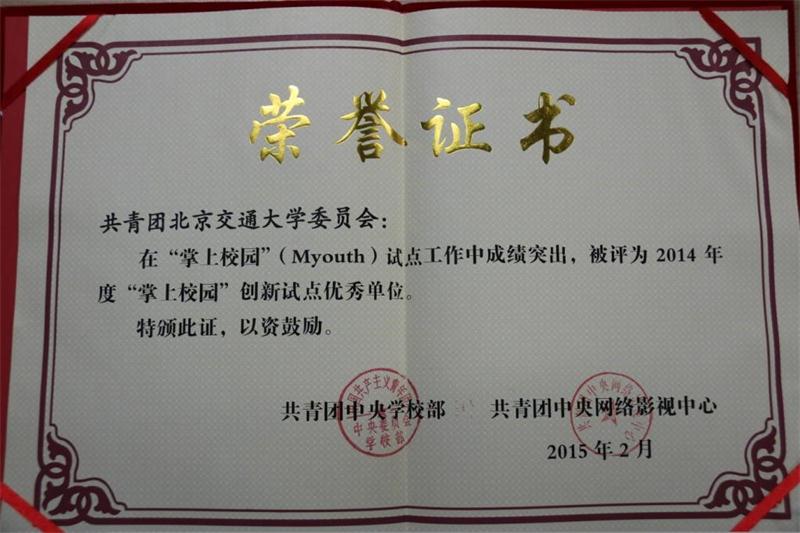 荣誉证书
共青团北京交通大学委员会：
在“掌上校园”（Myouth）试点工作中成绩突出，被评为 2014 年
度“掌上校园”创新试点优秀单位。
特颁此证，以资鼓励。
共青团中央学校部 共青团中央网络影视中心
中央委员会
学校部
2015 年 2 月